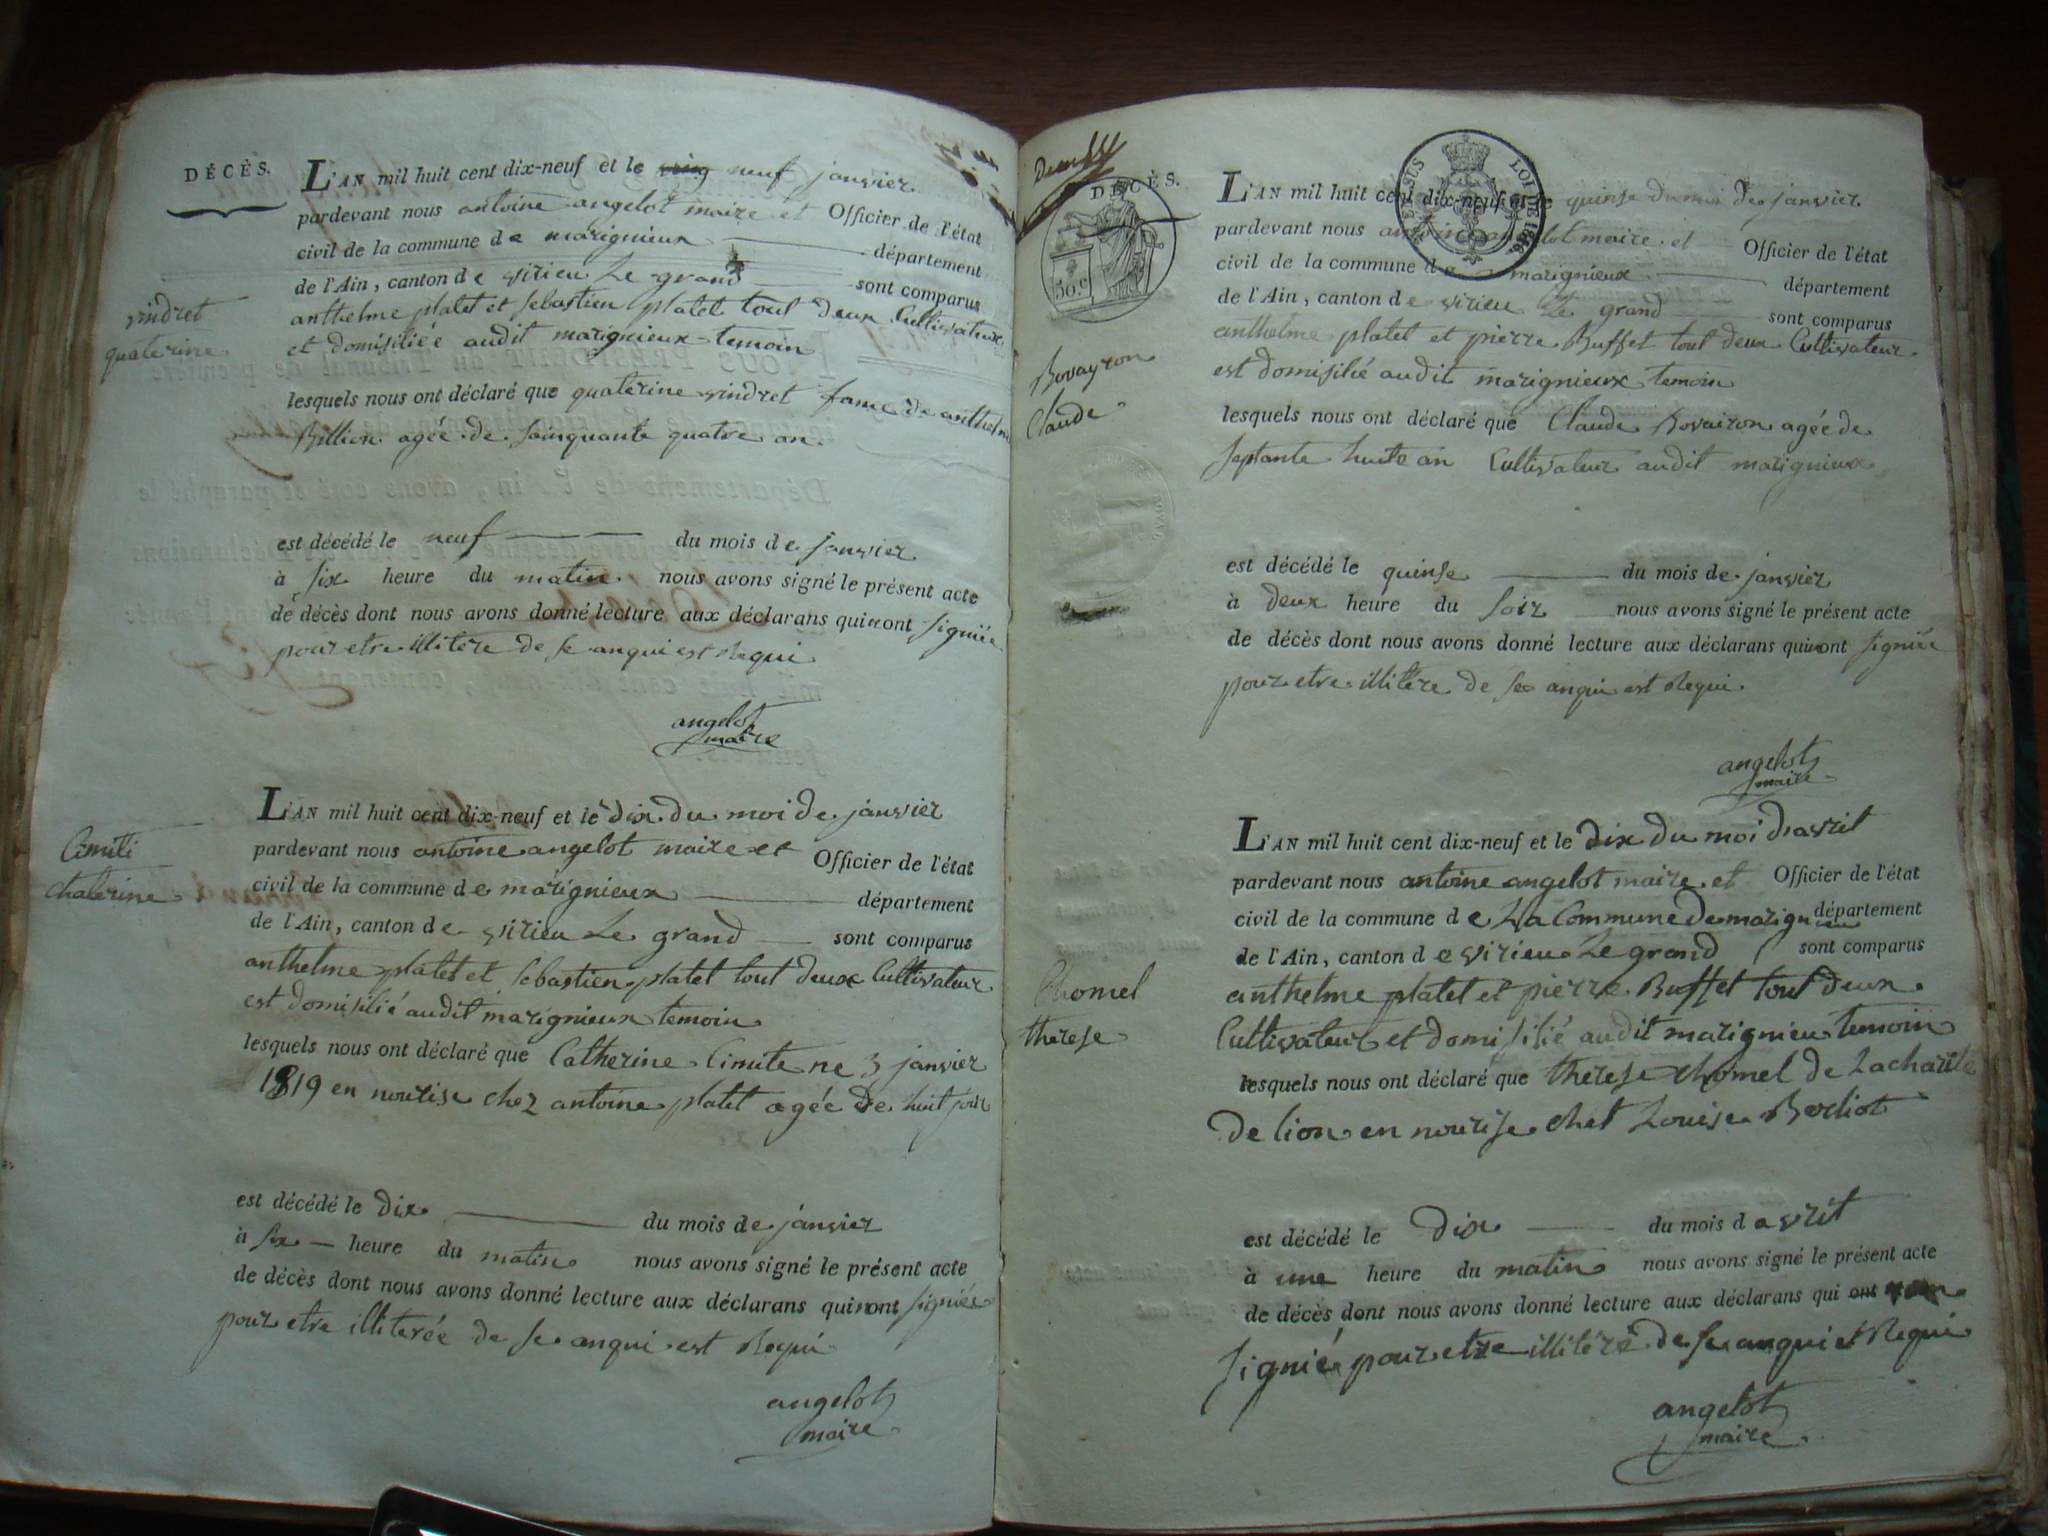 DÉCÈS.
L'AN mil huit cent dix-neuf et le neuf janvier
pardevant nous antoine angelot maire et Officier de l'état
civil de la commune de marignieux département
de l'Ain, canton de virieu Le grand sont comparus
anthelme platet et sebastien platet tout deux Cultivateur
et domisiliée audit marignieux temoin
vindret
quaterine
lesquels nous ont déclaré que quaterine vindret fame de anthelme
Billion agée de sainquante quatre an
est décédé le neuf du mois de janvier
à six heure du matin nous avons signé le présent acte
de décès dont nous avons donné lecture aux déclarans quinont signiée
pour etre illitere de se anqui est Requi
angelot
maire
L'AN mil huit cent dix-neuf et le dix du moi de janvier
pardevant nous antoine angelot maire et Officier de l'état
civil de la commune de marignieux département
de l'Ain, canton de virieu Le grand sont comparus
anthelme platet et sebastien platet tout deux Cultivateur
est domisilié audit marignieux temoin
Cimiti
Chaterine
lesquels nous ont déclaré que Catherine Cimite ne 3 janvier
1819 en nourise chez antoine platet agée de huit jour
est décédé le dix du mois de janvier
à six heure du matin nous avons signé le présent acte
de décès dont nous avons donné lecture aux déclarans quinont signiée
pour etre illiterée de se anqui est Requi
angelot
maire
DÉCÈS.
50.c
LOI DE 1816
L'AN mil huit cent dix-neuf et le quinse du moi de janvier
pardevant nous antoine angelot maire et Officier de l'état
civil de la commune de marignieux département
de l'Ain, canton de virieu Le grand sont comparus
anthelme platet et pierre Buffet tout deux Cultivateur
est domisilié audit marignieux temoin
Bovayron
Claude
lesquels nous ont déclaré que Claude Bovairon agée de
septante huite an Cultivateur audit marignieux
est décédé le quinse du mois de janvier
à deux heure du soir nous avons signé le présent acte
de décès dont nous avons donné lecture aux déclarans quinont signiée
pour etre illitere de se anqui est Requi
angelot
maire
L'AN mil huit cent dix-neuf et le dix du moi davril
pardevant nous antoine angelot maire et Officier de l'état
civil de la commune de La Commune de marignieu département
de l'Ain, canton de virieu Le grand sont comparus
anthelme platet et pierre Buffet tout deux
Cultivateur et domisilié audit marignieu temoin
Chomel
therese
lesquels nous ont déclaré que therese chomel de Lacharite
De lion en nourise chet Louise Berliot
est décédé le dix du mois d avril
à une heure du matin nous avons signé le présent acte
de décès dont nous avons donné lecture aux déclarans qui ont
signié pour etre illitéré de se anqui et Requi
angelot
maire